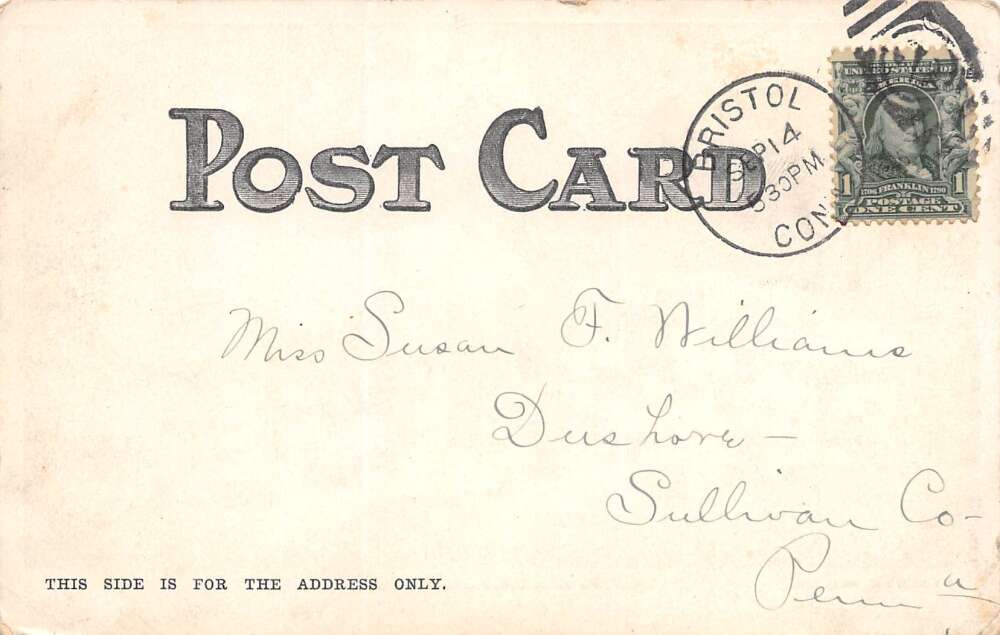 POST CARD
BRISTOL
SEP 14
30PM
CONN
UNITED STATES OF
AMERICA
1 1706 FRANKLIN 1790 1
POSTAGE
ONE CENT
Miss Susan F. Williams
Dushore —
Sullivan Co-
Penn a
THIS SIDE IS FOR THE ADDRESS ONLY.